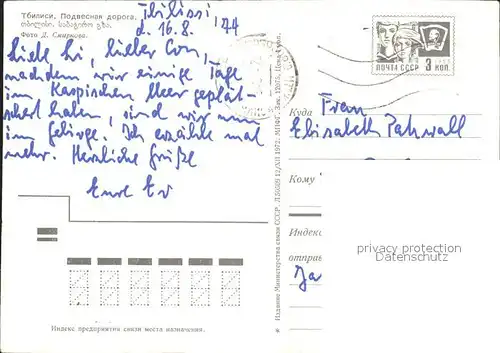 Тбилиси. Подвесная дорога.
თბილისი. საბაგირო გზა.
Фото Д. Смирнова.
Tbilissi,
d. 16.8. 74
Liebe Li, lieber Con,
nachdem wir einige Tage
im Kaspischen Meer geplät-
schert haben, sind wir nun
im Gebirge. Ich erzähle mal
mehr. Herzliche Grüße
Eure Ev
ПОЧТА СССР 3 КОП
Издание Министерства связи СССР.
Куда
Frau
Elisabeth Pahwall
Кому
Индекс
отправ
privacy protection
Datenschutz
Индекс предприятия связи места назначения.